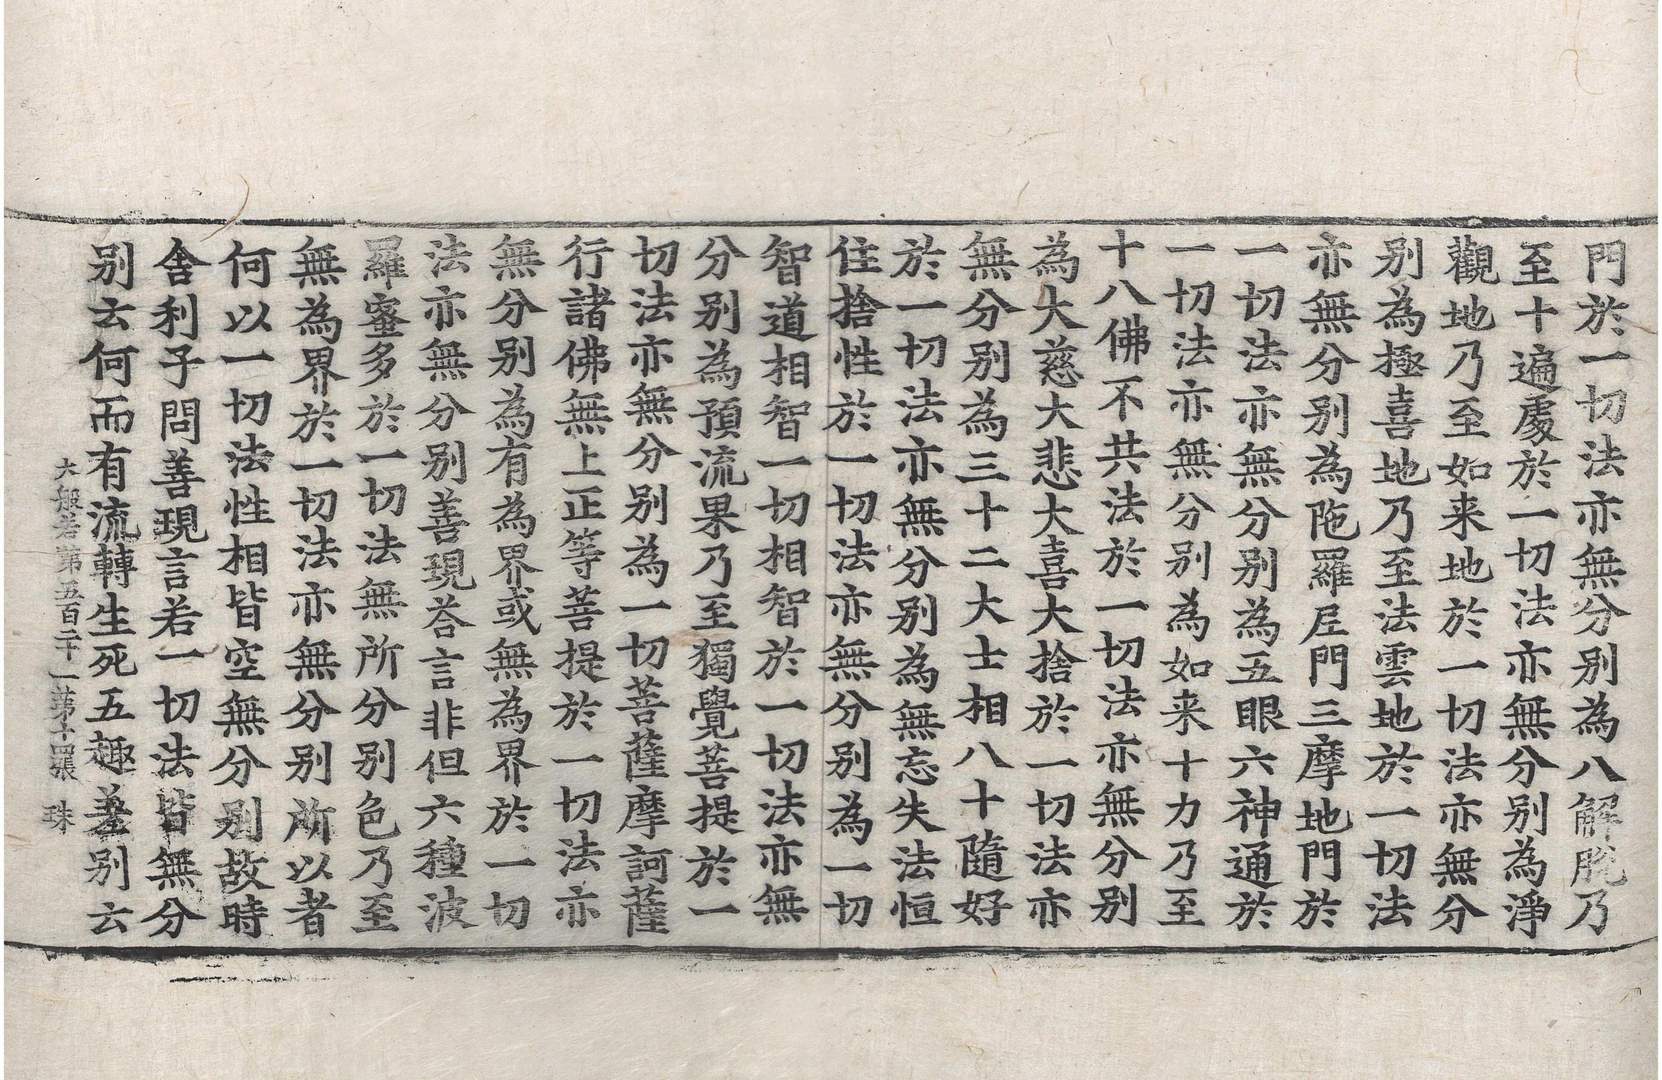 門於一切法亦無分别為八解脫乃
至十遍處於一切法亦無分别為淨
觀地乃至如来地於一切法亦無分
别為極喜地乃至法雲地於一切法
亦無分别為陁羅尼門三摩地門於
一切法亦無分别為五眼六神通於
一切法亦無分别為如来十力乃至
十八佛不共法於一切法亦無分别
為大慈大悲大喜大捨於一切法亦
無分别為三十二大士相八十隨好
於一切法亦無分别為無忘失法恒
住捨性於一切法亦無分别為一切
智道相智一切相智於一切法亦無
分别為預流果乃至獨覺菩提於一
切法亦無分别為一切菩薩摩訶薩
行諸佛無上正等菩提於一切法亦
無分别為有為界或無為界於一切
法亦無分别善現荅言非但六種波
羅蜜多於一切法無所分别色乃至
無為界於一切法亦無分别所以者
何以一切法性相皆空無分别故時
舍利子問善現言若一切法皆無分
别云何而有流轉生死五趣差别云
大般若第五百二十一 第十四張 珠